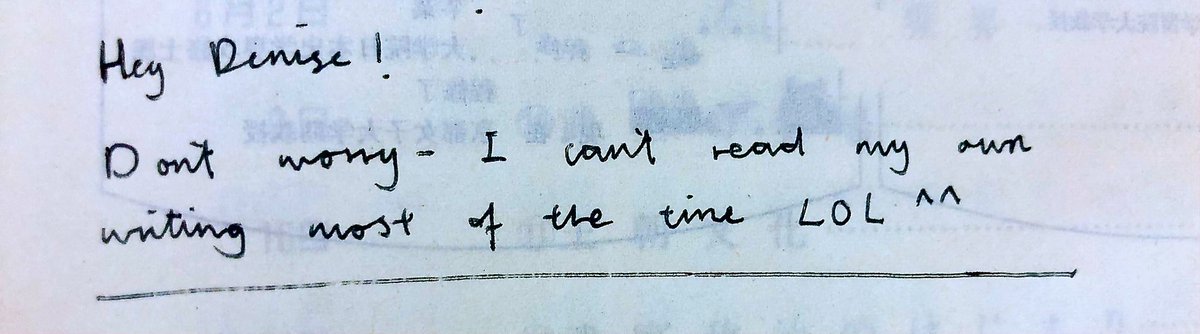 Hey Denise!
Don't worry - I can't read my own
writing most of the time LOL ^^